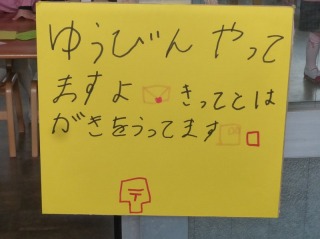 ゆうびん やって
ますよ きってとは
がきをうってます
〒